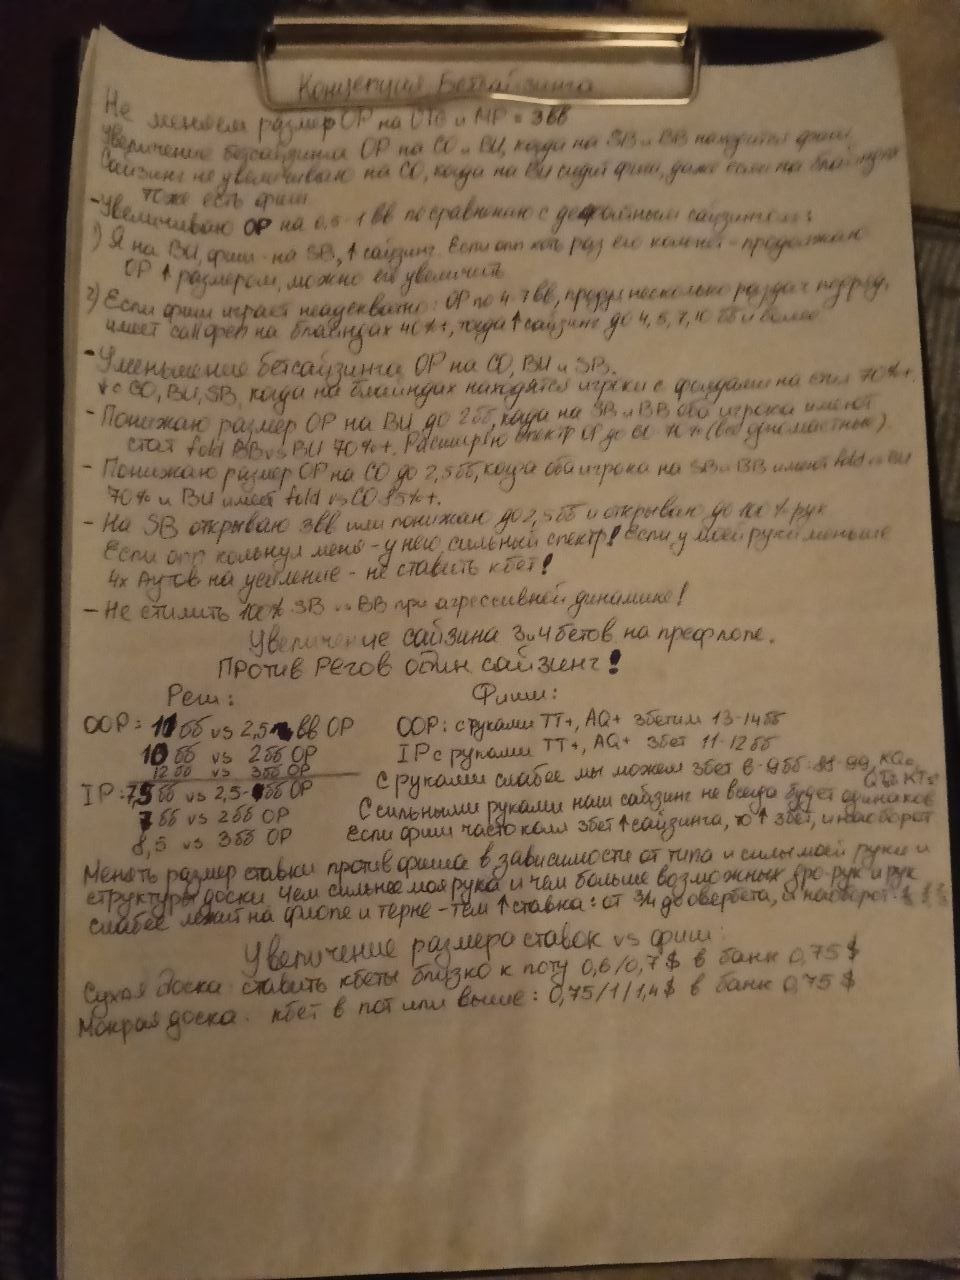 Концепция Бетсайзинга
Не меняем размер OP на UTG и MP = 3вв
Увеличение бетсайзинга OP на CO и BU, когда на SB и BB находится фиш.
Сайзинг не увеличиваю на CO, когда на BU сидит фиш, даже если на блайндах
тоже есть фиш.
- Увеличиваю OP на 0,5-1 вв по сравнению с дефолтным сайзингом:
1) Я на BU, фиш - на SB, ↑ сайзинг. Если опп хоть раз его кольнет - продолжаю
OP ↑ размером, можно его увеличить
2) Если фиш играет неадекватно: OP по 4-7вв, несколько раздач подряд,
имеет на блаиндах 40%+, тогда ↑ сайзинг до 4, 5, 7, 10 бб и более
- Уменьшение бетсайзинга OP на CO, BU и SB.
с CO, BU, SB, когда на блаиндах находятся игроки с фолдами на стил 70%+.
- Понижаю размер OP на BU до 2бб, когда на SB и BB оба игрока имеют
стат fold BB vs BU 70%+. Расширяю спектр OP до 60-70% (все одномастные).
- Понижаю размер OP на CO до 2,5бб, когда оба игрока на SB и BB имеют fold vs BU
70% и BU имеет fold vs CO 85%+.
- На SB открываю 3вв или понижаю до 2,5бб и открываю до 100% рук
Если опп кольнул меня - у него сильный спектр! Если у моей руки меньше
4х Аутов на усиление - не ставить кбет!
- Не стилить 100% SB vs BB при агрессивной динамике!
Увеличение сайзина 3и4бетов на префлопе.
Против Регов один сайзинг!
Реги: Фиши:
OOP: 11бб vs 2,5 вв OP OOP: с руками TT+, AQ+ 3бетим 13-14бб
10бб vs 2бб OP IP с руками TT+, AQ+ 3бет 11-12бб
12бб vs 3бб OP С руками слабее мы можем 3бет 8-9бб: 88-99, KQo,
QJs KTs
IP: 7,5бб vs 2,5 бб OP С сильными руками наш сайзинг не всегда будет одинаков
7бб vs 2бб OP Если фиш часто колл 3бет ↑ сайзинга, то ↑ 3бет, и наоборот
8,5 vs 3бб OP
Менять размер ставки против фиша в зависимости от типа и силы моей руки и
структуры доски чем сильнее моя рука и чем больше возможных дро-рук и рук
слабее лежит на флопе и терне - тем ↑ ставка: от 3/4 до овербета, и наоборот.
Увеличение размера ставок vs фиш:
Сухая доска: ставить кбеты близко к поту 0,6/0,7$ в банк 0,75$
Мокрая доска: кбет в пот или выше: 0,75/1/1,4$ в банк 0,75$